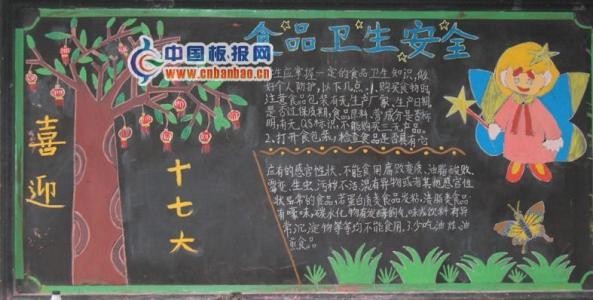 中国板报网
www.cnbanbao.cn
食品卫生安全
喜迎
十七大
生应掌握一定的食品卫生知识,做
好个人防护,以下几点:1.购买食物时
注意食品包装有无生产厂家、生产日期,
是否过保质期,食品原料、营成分是否标
明,有无QS标识,不能购买三无产品。
2.打开食包装,检查食品是否具有它
应有的感官性状。不能食用腐败变质、油脂酸败、
霉变、生虫、污秽不洁、混有异物或者其他感官性
状异常的食品,若蛋白质类食品发粘,渍脂类食品
有嚎味,碳水化物有发酵的气味或饮料有异
常沉淀物等等均不能食用。3.少吃油炸油
煎食品